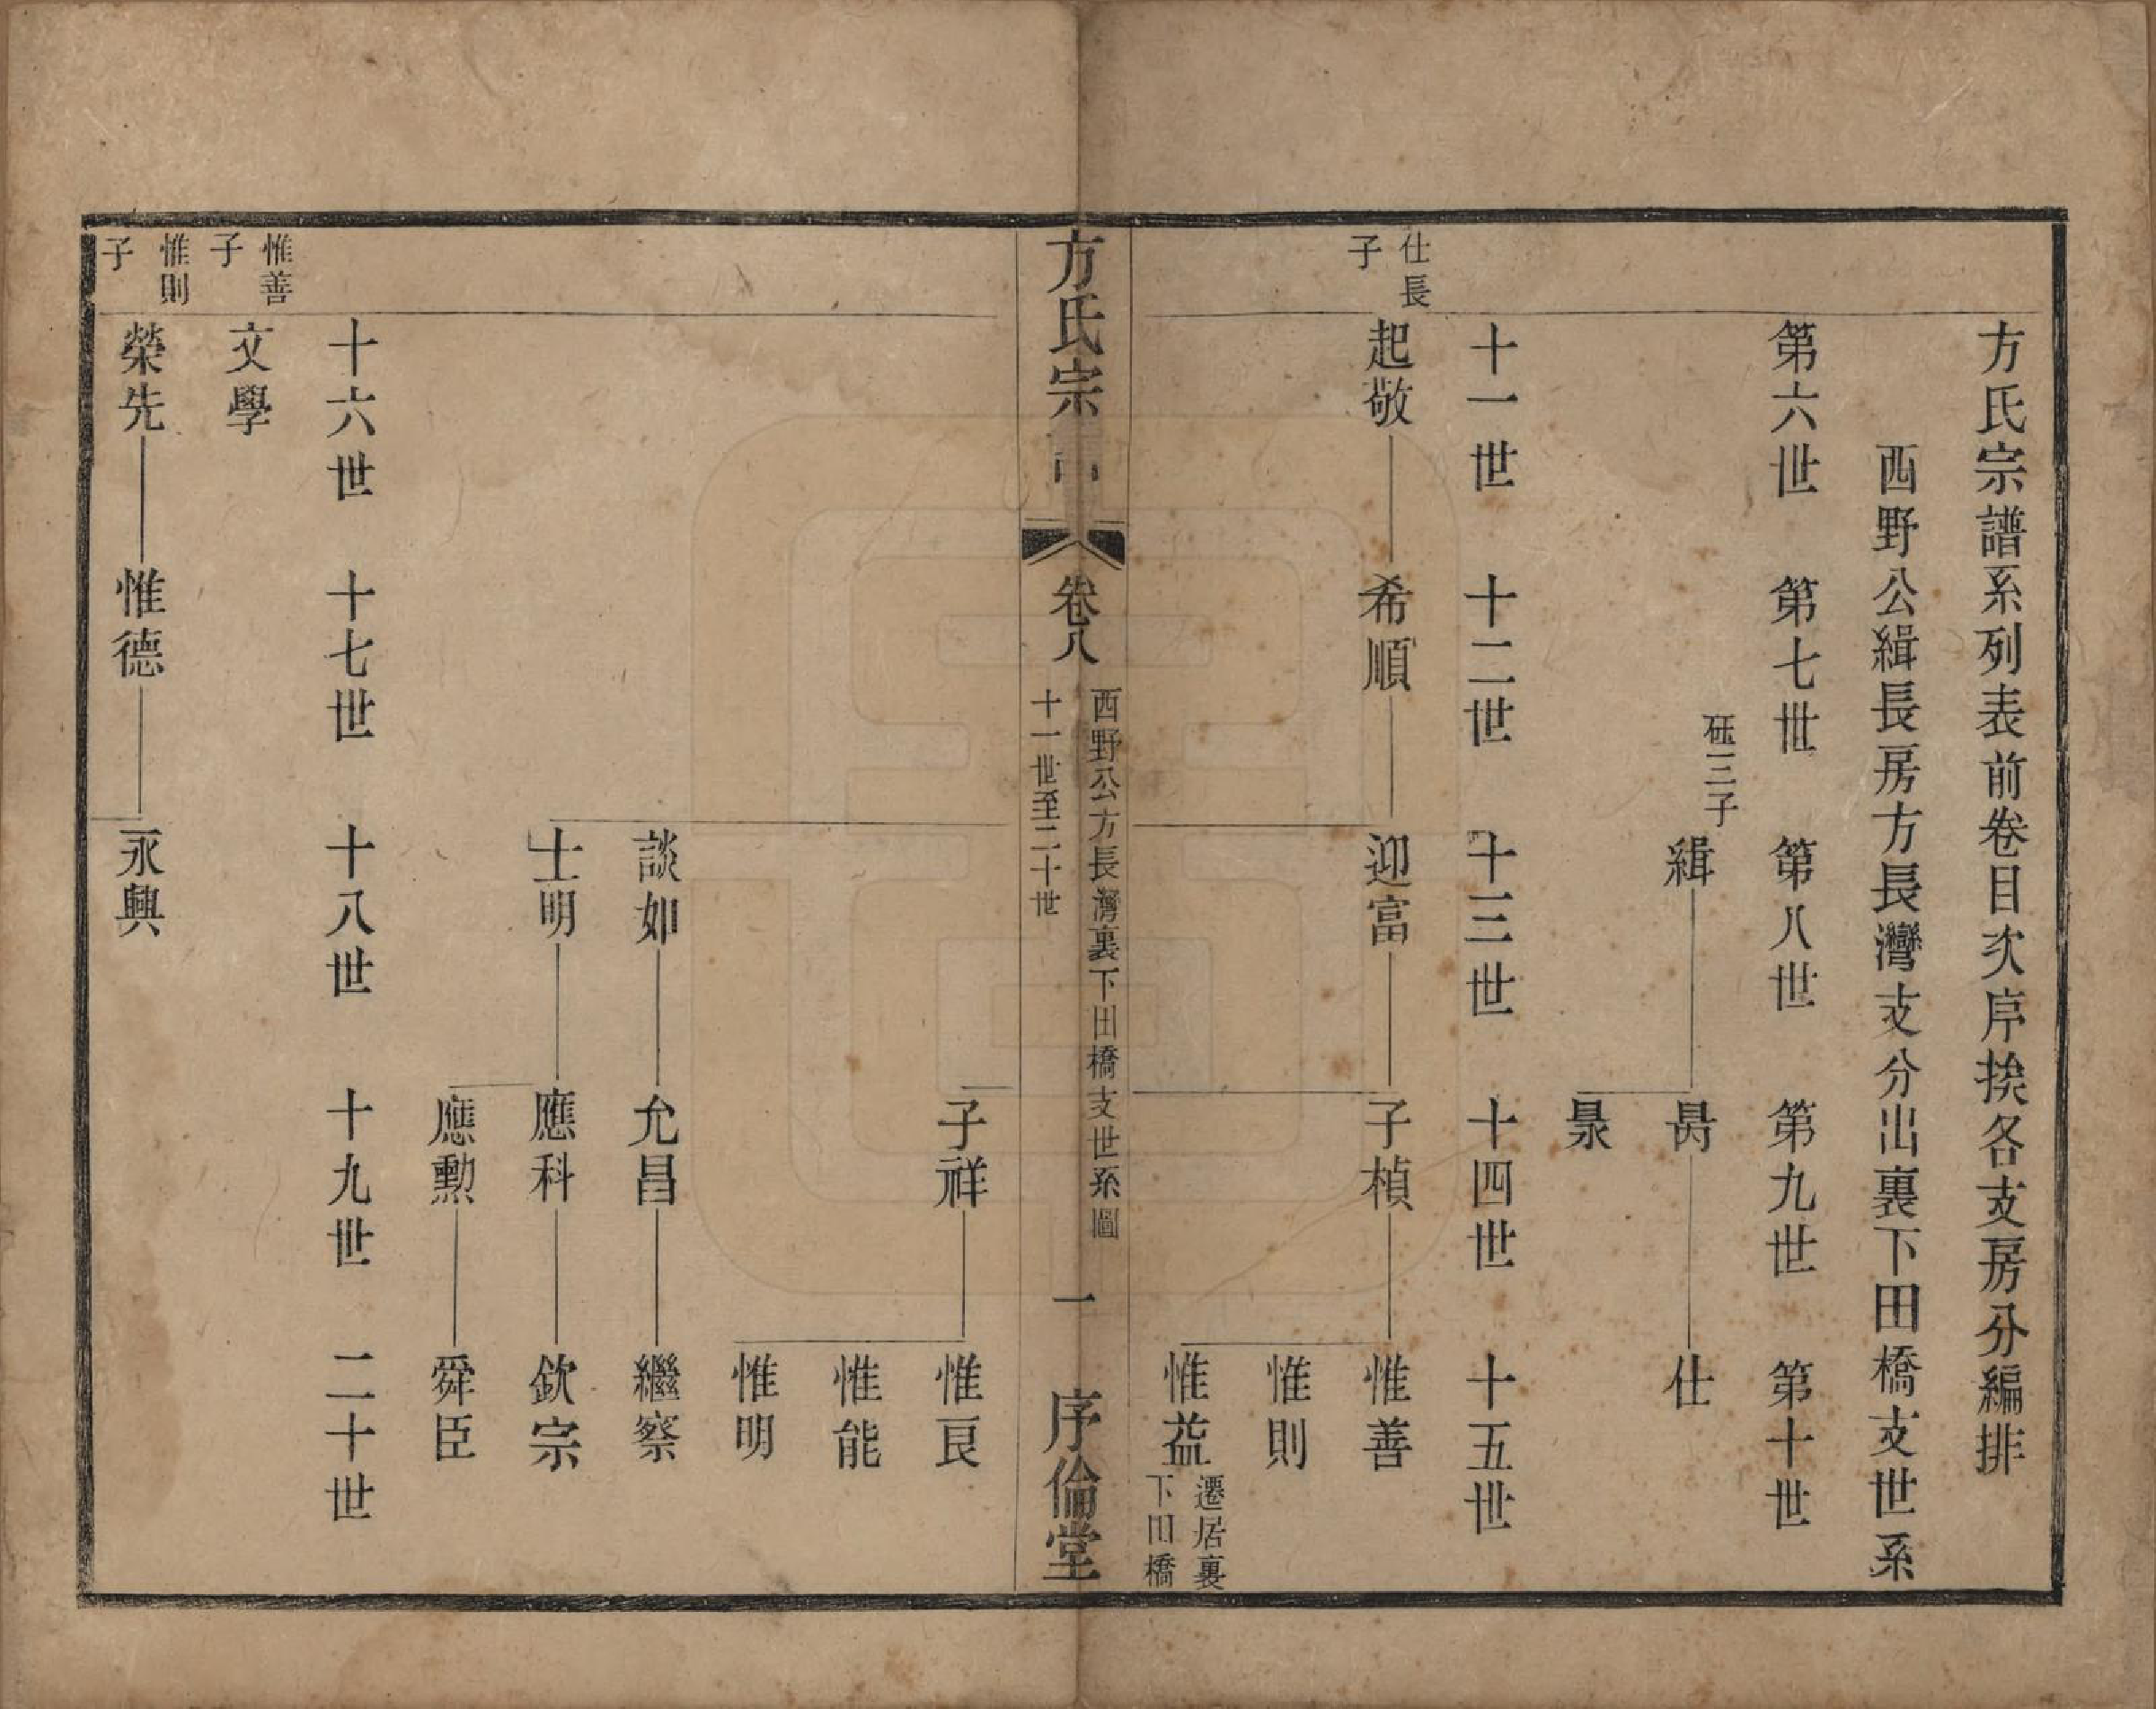 方氏宗譜系列表前卷目次序挨各支房分編排
西野公緝長房方長灣支分出裏下田橋支世系
第六世 第七世 第八世 第九世 第十世
砡三子
緝 昺 仕
晜
十一世 十二世 十三世 十四世 十五世
仕長
子
起敬 希順 迎富 子楨 惟善
惟則
惟益 遷居裏
下田橋
方氏宗譜 卷八 西野公方長灣裏下田橋支世系圖
十一世至二十世
一 序倫堂
子祥 惟良
惟能
惟明
談如 允昌 繼察
士明 應科 欽宗
應勳 舜臣
十六世 十七世 十八世 十九世 二十世
惟善
子
文學
惟則
子
榮先 惟德 永興